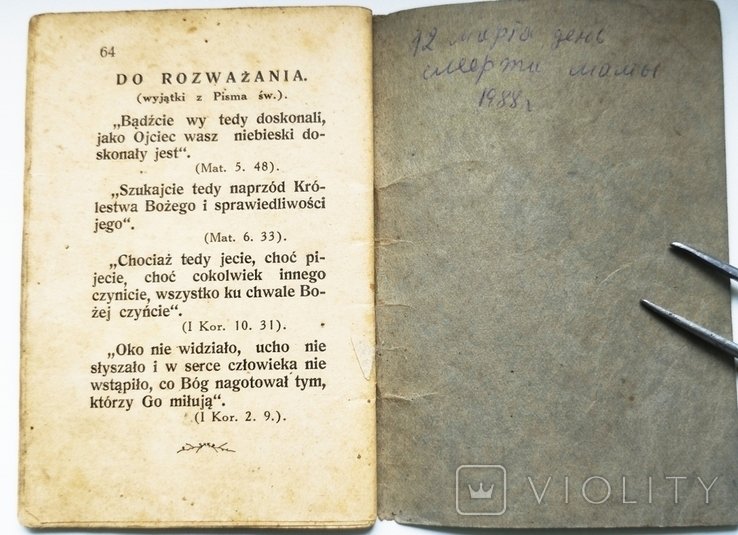 64
DO ROZWAŻANIA.
(wyjątki z Pisma św.).
„Bądźcie wy tedy doskonali,
jako Ojciec wasz niebieski do-
skonały jest“.
(Mat. 5. 48).
„Szukajcie tedy naprzód Kró-
lestwa Bożego i sprawiedliwości
jego“.
(Mat. 6. 33).
„Chociaż tedy jecie, choć pi-
jecie, choć cokolwiek innego
czynicie, wszystko ku chwale Bo-
żej czyńcie“.
(I Kor. 10. 31).
„Oko nie widziało, ucho nie
słyszało i w serce człowieka nie
wstąpiło, co Bóg nagotował tym,
którzy Go miłują“.
(I Kor. 2. 9.).
12 марта день
смерти мамы
1988 г
VIOLITY